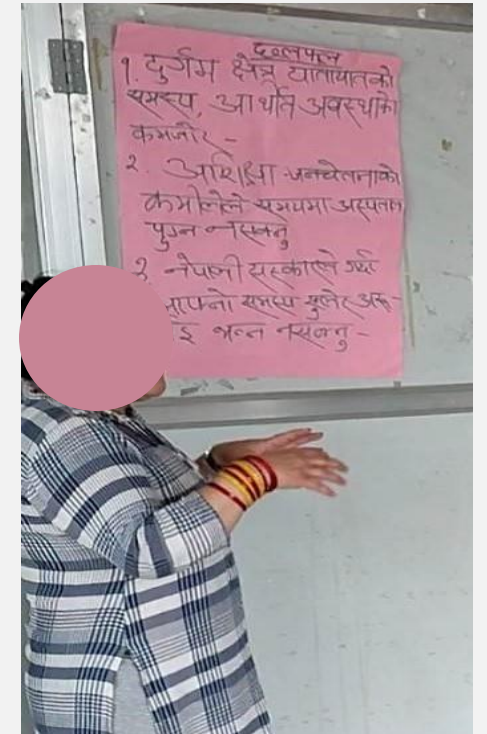 छलफल
१. दुर्गम क्षेत्र यातायातको
समस्या, आर्थीत अवस्थाको
कमजोर -
२. अशिक्षा जनचेतनाको
कमीलेले समयमा अस्पताल
पुग्न नसक्नु
३ नेपाली संस्कारले गर्दा
आफ्नो समस्या खुलेर अरू-
इ भन्न नसक्नु -